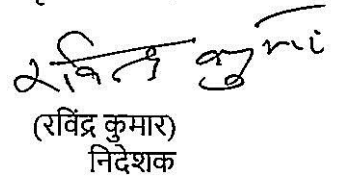 रविन्द्र कुमार
(रविंद्र कुमार)
निदेशक